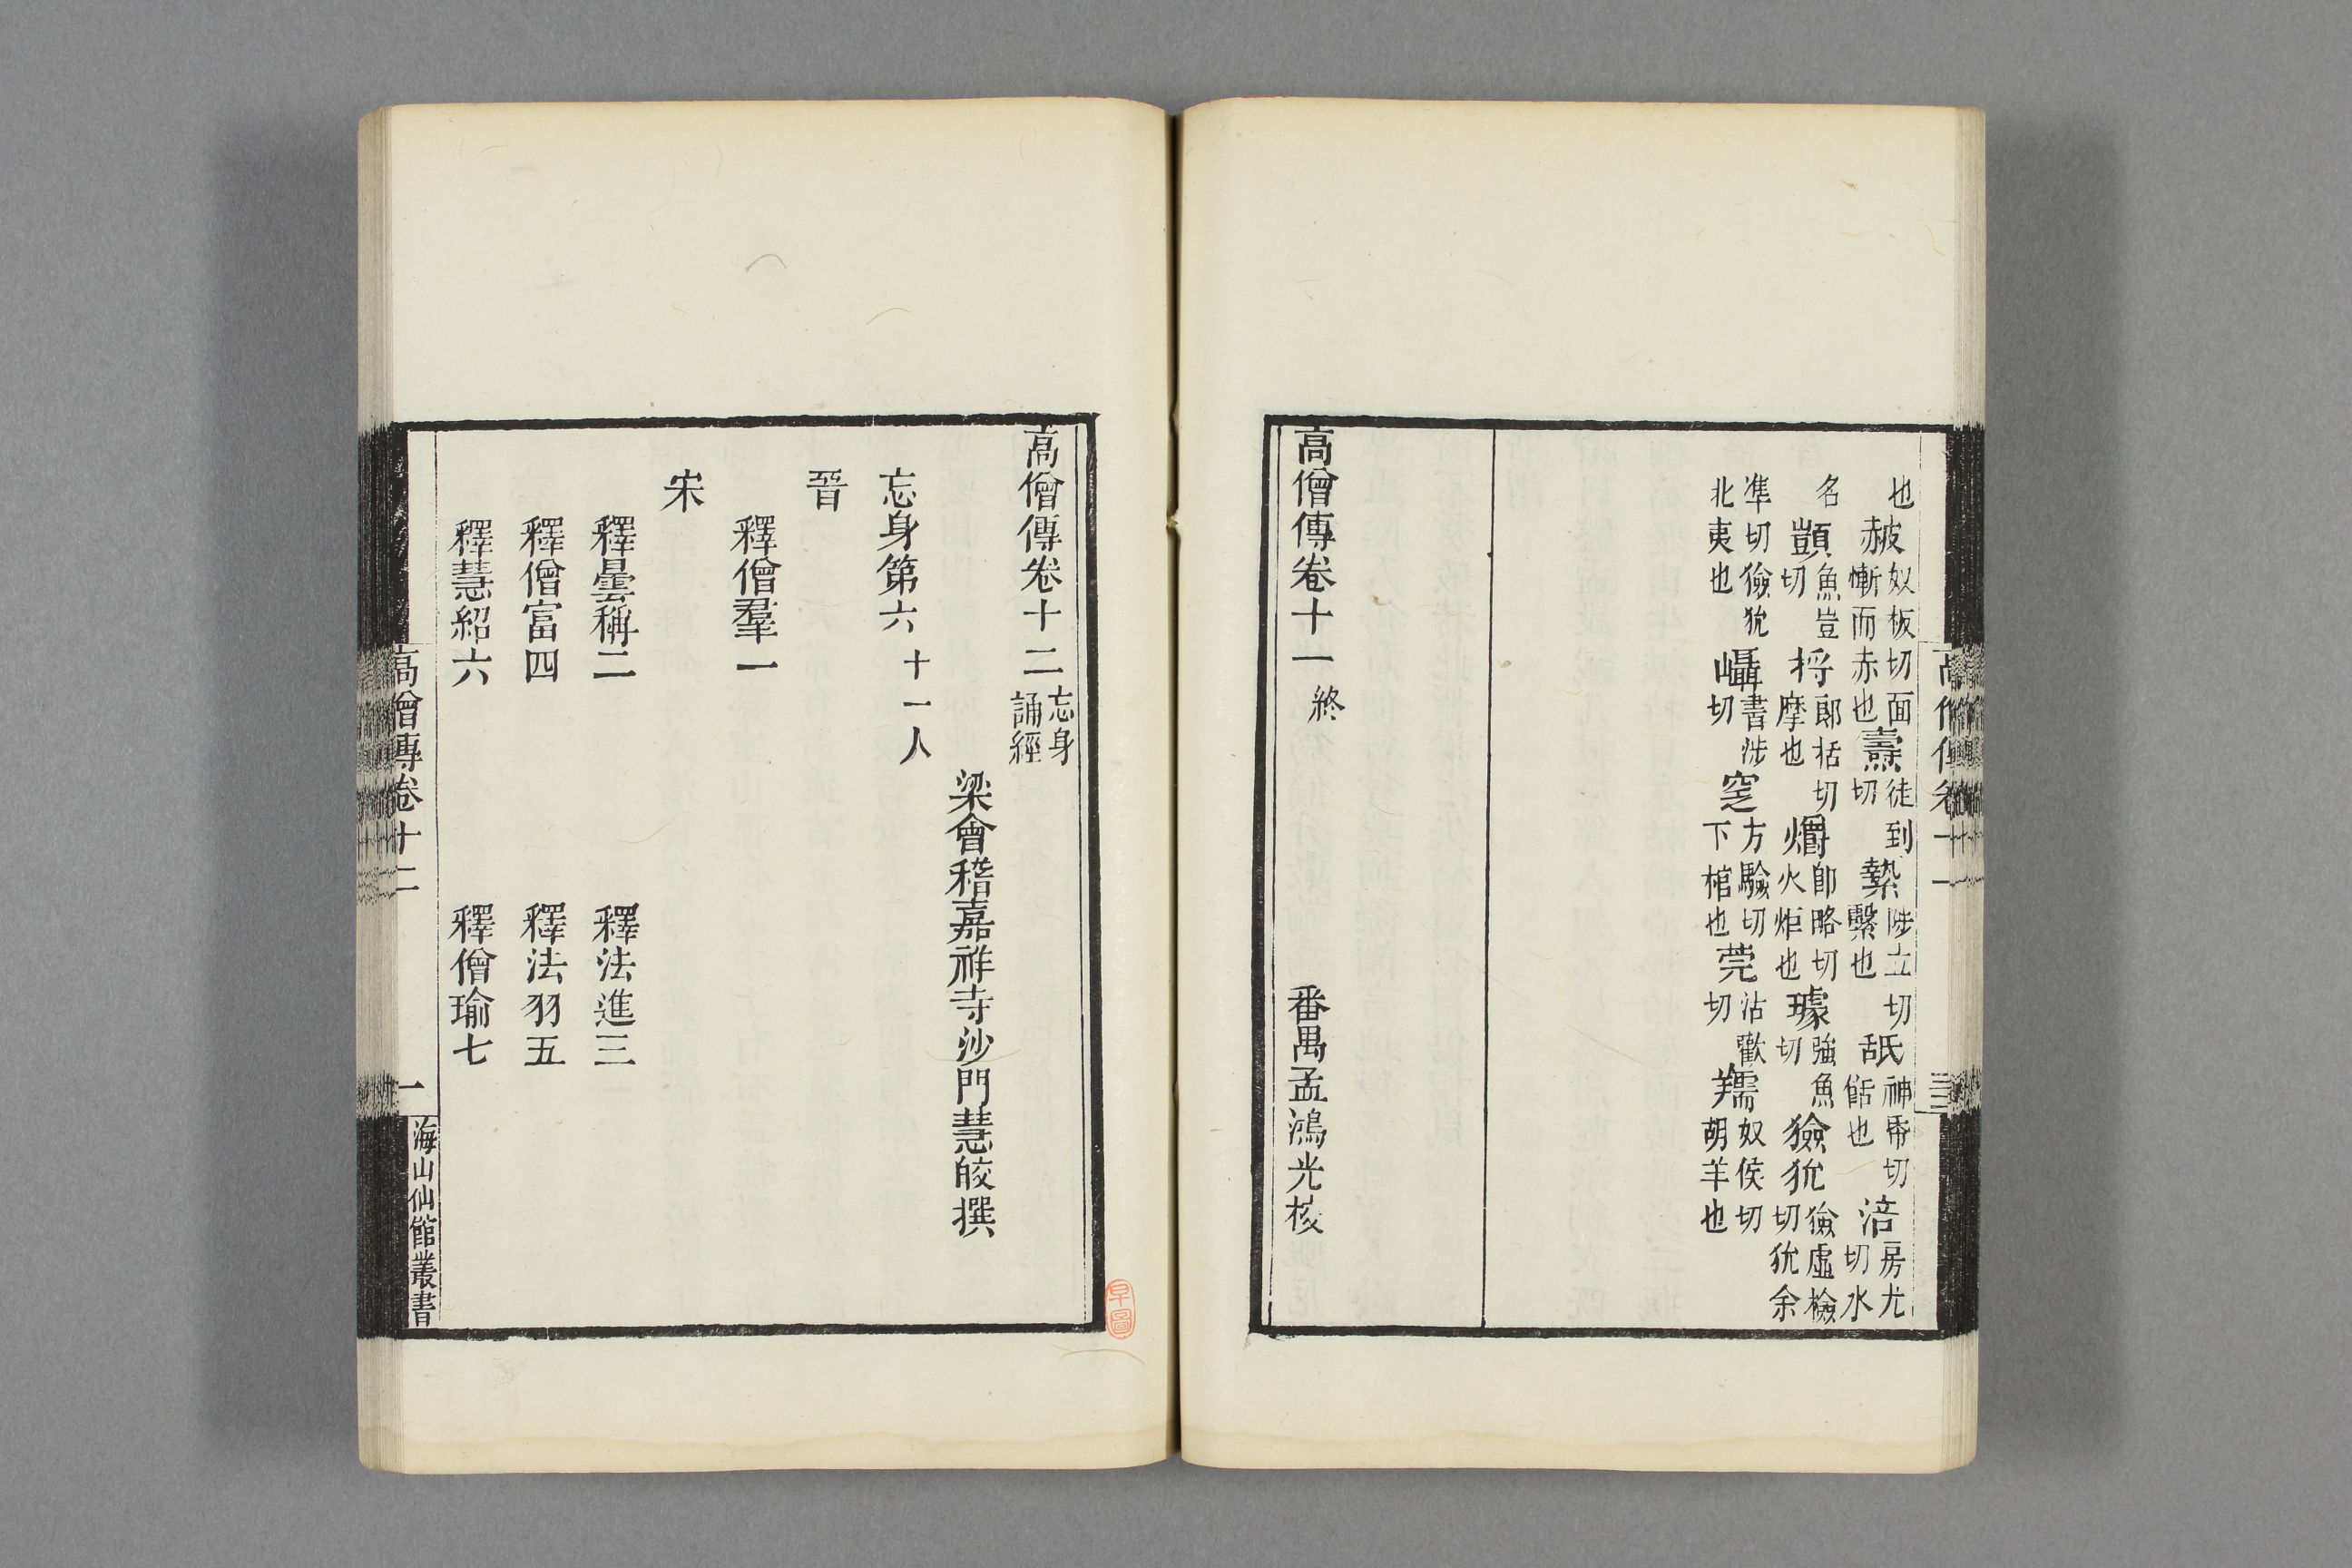 也赧奴板切面慚而赤也燾徒到切縶陟立切繫也舐神帋切餂也涪房尤切水
名顗魚豈切捋郎括切摩也爝卽略切火炬也璩強魚切獫狁獫虛檢切狁余
準切獫狁北夷也囁書涉切窆方驗切下棺也莞沽歡切羺奴侯切胡羊也
高僧傳卷十一終
番禺孟鴻光校
高僧傳卷十一
三
高僧傳卷十二忘身誦經
梁會稽嘉祥寺沙門慧皎撰
忘身第六十一人
晉
釋僧羣一
宋
釋曇稱二 釋法進三
釋僧富四 釋法羽五
釋慧紹六 釋僧瑜七
高僧傳卷十二
一
海山仙館叢書
早圖